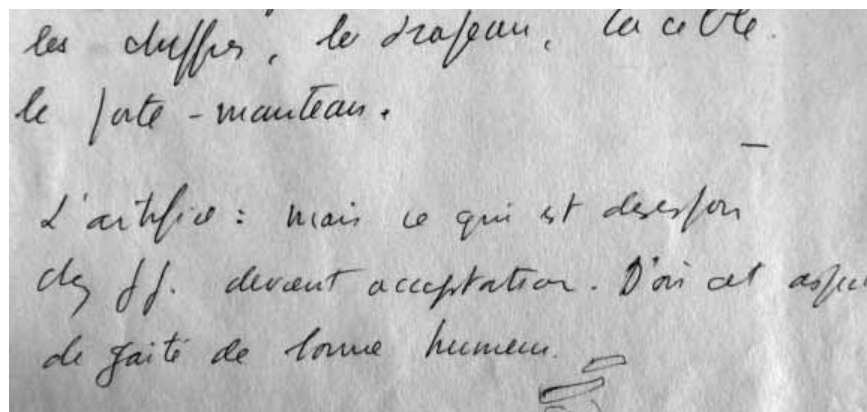 les chiffres, le drapeau, la cible.
le porte-manteau.
L'artifice : mais ce qui est desespoir
chez devient acceptation. D'où cet aspect
de gaité de bonne humeur.